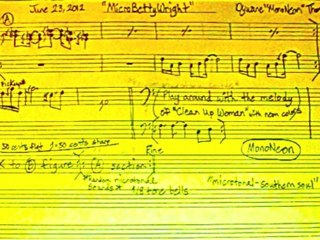 June 23, 2012 "MicroBettyWright" Dywane "MonoNeon" Tho
A
Pickup
Play around with the melody
of "Clean Up Woman" with neon colors
50 cents flat 50 cents sharp
Fine
MonoNeon
to B figure A section
*Random microtonal
sounds*
1/3 tone bells
"microtonal-southern soul"